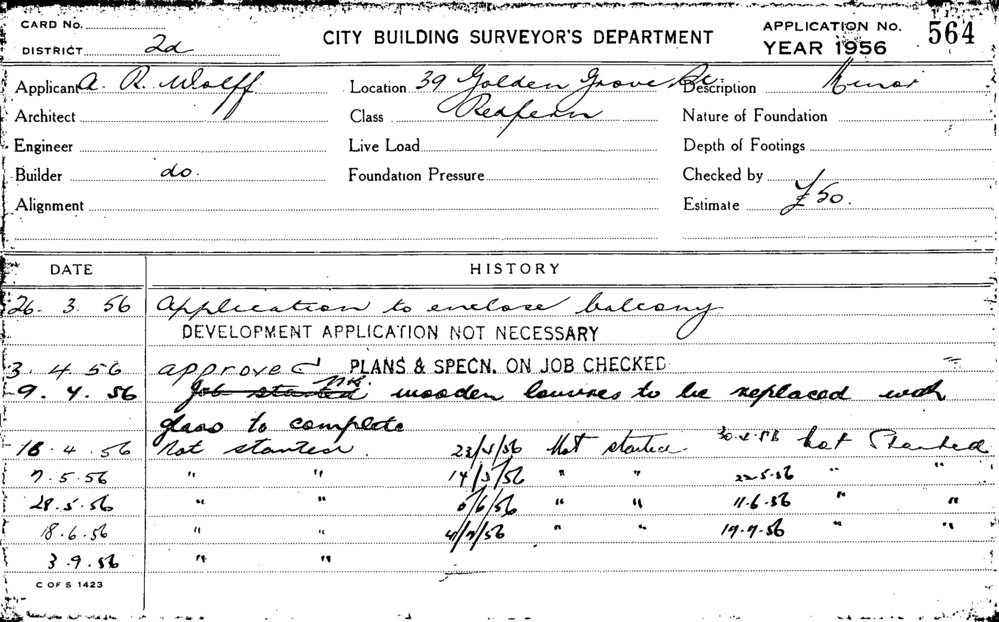 CARD No.
DISTRICT 2d
CITY BUILDING SURVEYOR'S DEPARTMENT
APPLICATION No. 564
YEAR 1956
Applicant A. R. Wolff
Location 39 Golden Grove St.
Description Minor
Architect
Class Redfern
Nature of Foundation
Engineer
Live Load
Depth of Footings
Builder do.
Foundation Pressure
Checked by
Alignment
Estimate £50.
DATE HISTORY
26. 3. 56 Application to enclose balcony
DEVELOPMENT APPLICATION NOT NECESSARY
3. 4. 56 approved PLANS & SPECN. ON JOB CHECKED
9. 4. 56 Job started wooden louvres to be replaced with
glass to complete
18. 4. 56 Not started. 23/4/56 Not started. 30.4.56 Not Started
7. 5. 56 " " 14/5/56 " " 22.5.56 " "
28. 5. 56 " " 5/6/56 " " 11.6.56 " "
18. 6. 56 " " 4/7/56 " " 19.7.56 " "
3. 9. 56 " "
C OF S 1423